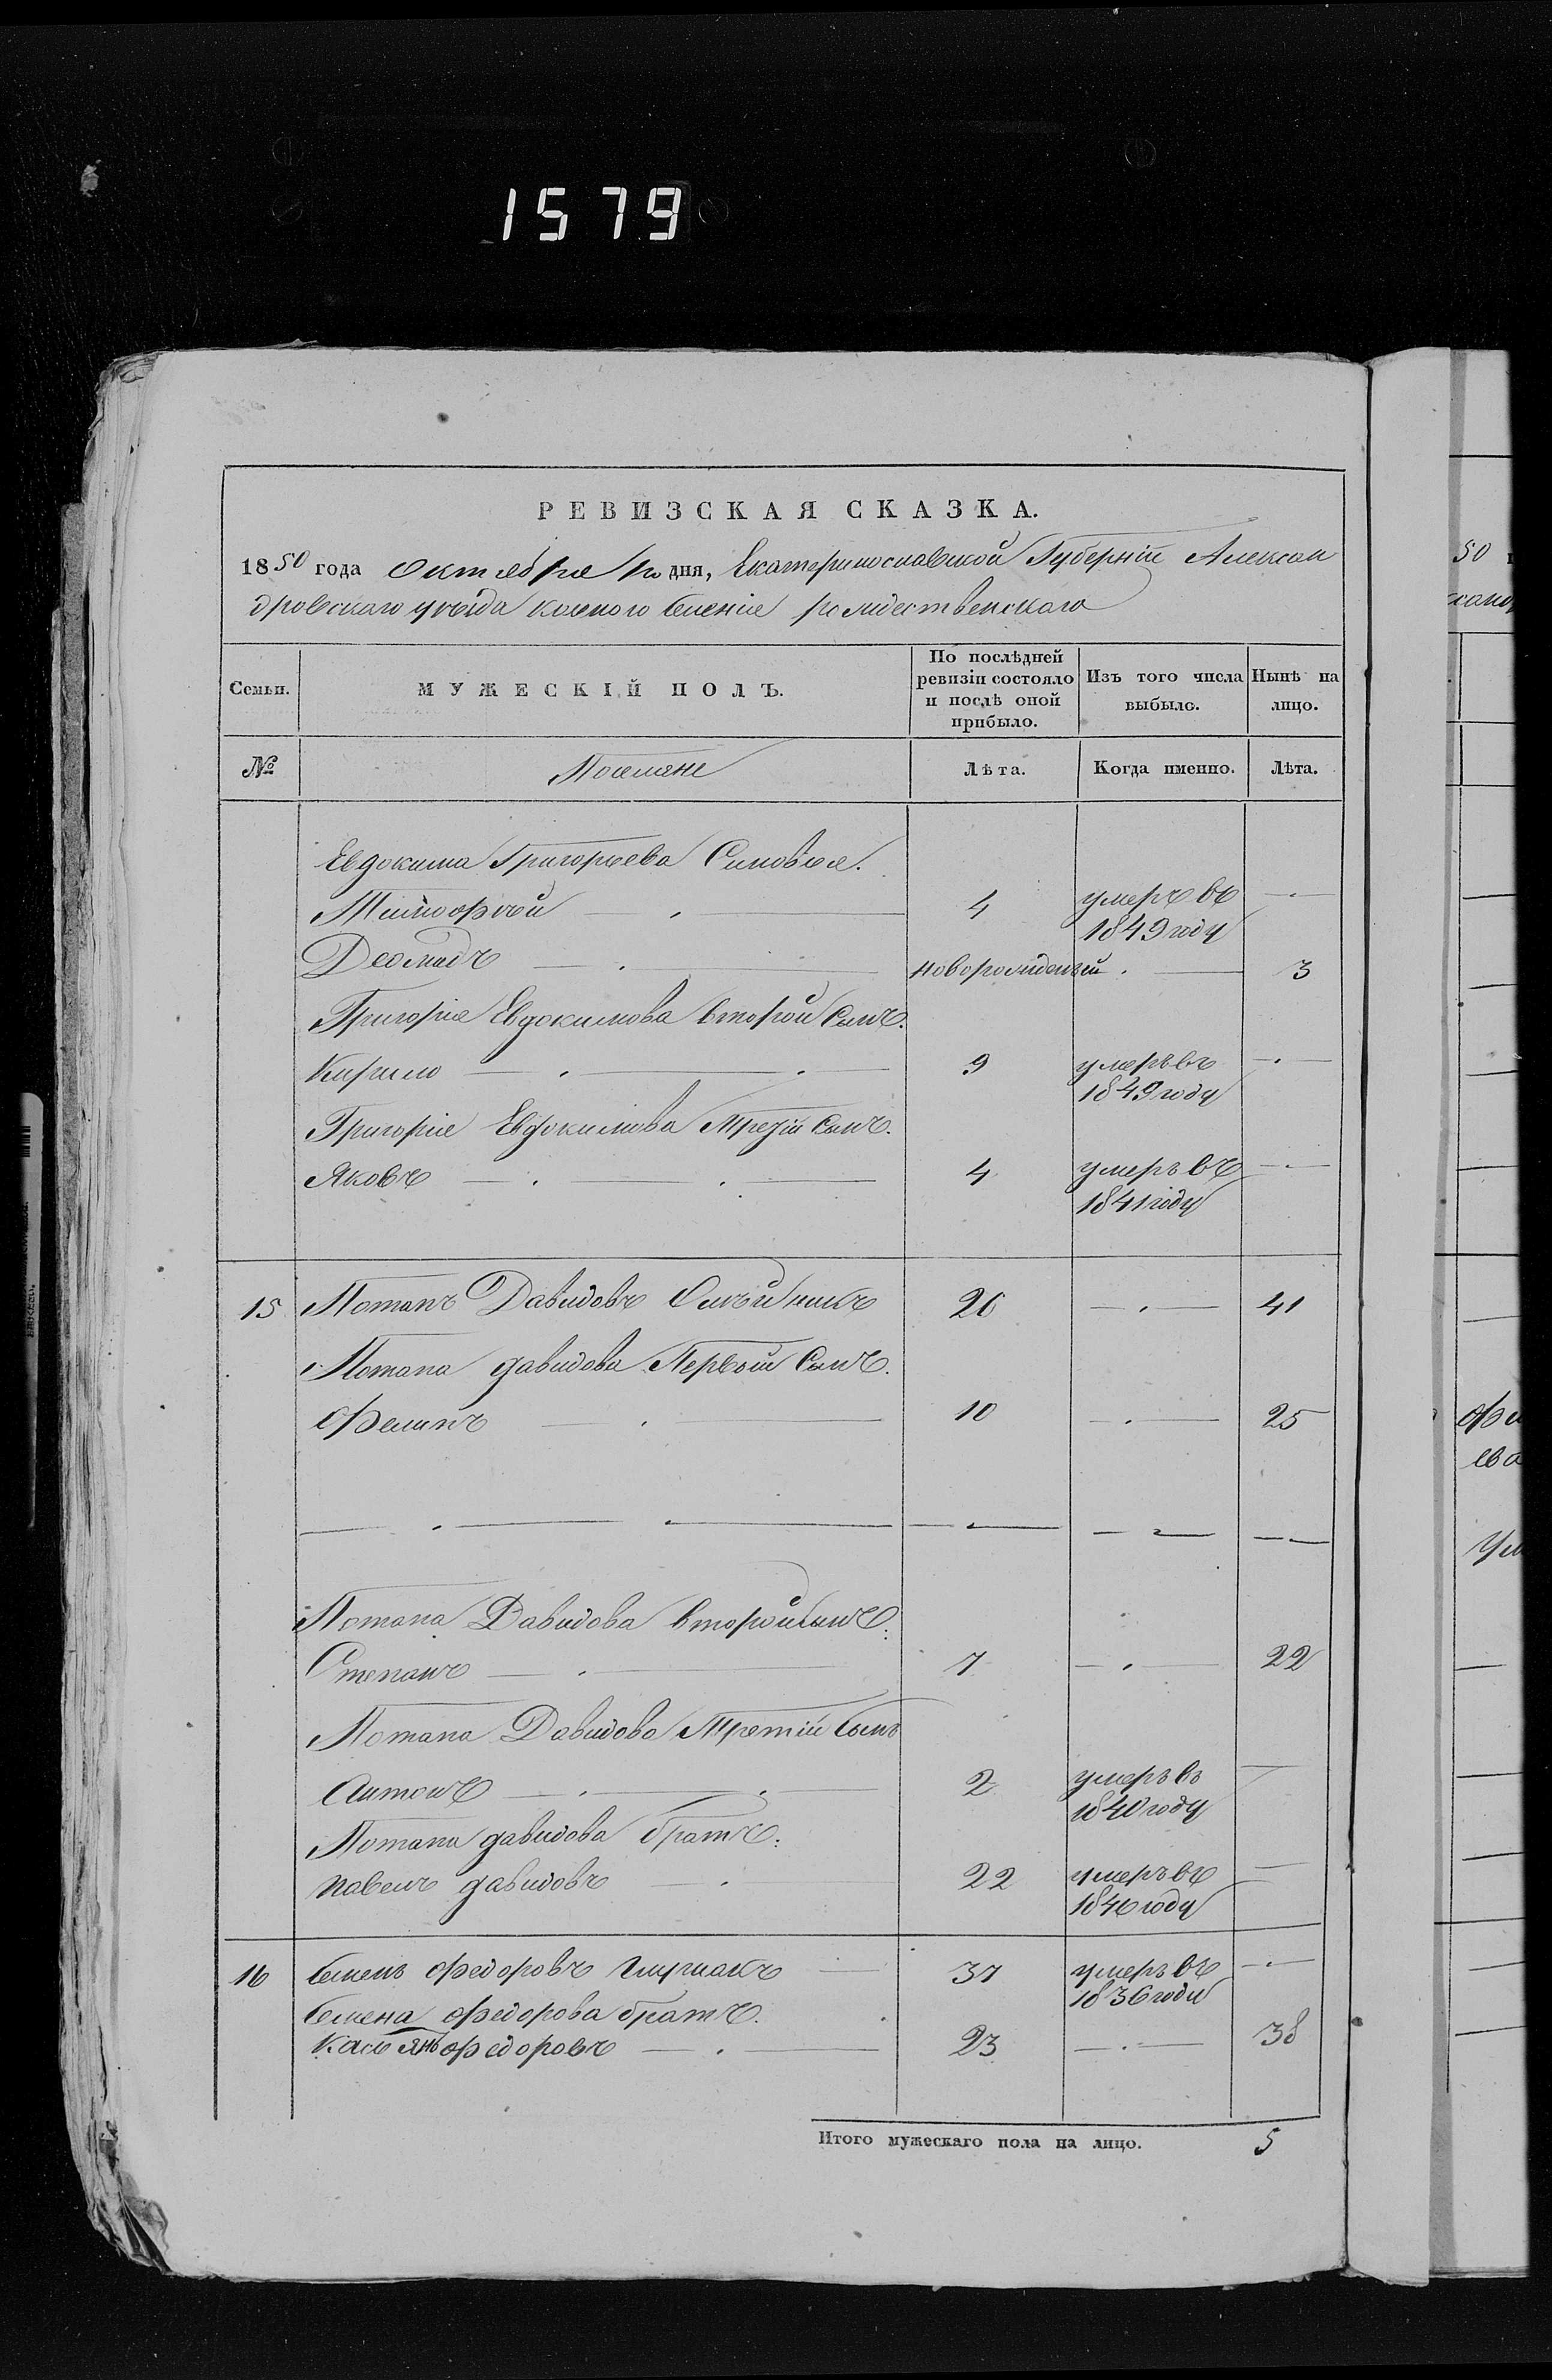 1579
РЕВИЗСКАЯ СКАЗКА.
1850 года октября дня, Екатеринославской Губерніи Алексан
дровскаго уѣзда рождественскаго
Семьи.
МУЖЕСКІЙ ПОЛЪ.
По послѣдней ревизіи состояло и послѣ оной прибыло.
Изъ того числа выбыло.
Нынѣ на лицо.
№
Поселяне
Лѣта.
Когда именно.
Лѣта.
Евдокима Григорьева Синовья.
Тимофѣй 4 умеръ въ 1849 году
Деомидъ новорожденый 3
Григорія Евдокимова второй Сынъ.
Кирило 9 умеръ въ 1849 году
Григорія Евдокимова Третій Сынъ.
Яковъ 4 умеръ въ 1841 году
15 Потапъ Давидовъ Олѣйникъ 26 41
Потапа давидова Первый Сынъ.
Филипъ 10 25
Потапа Давидова второй Сынъ:
Степанъ 7 22
Потапа Давидова Третій Сынъ
Антонъ 2 умеръ въ 1840 году
Потапа давидова братъ:
Павелъ давидовъ 22 умеръ въ 1846 году
16 Семенъ Федоровъ 37 умеръ въ 1836 году
Семена Федорова братъ.
Касьянъ Федоровъ 23 38
Итого мужескаго пола на лицо. 5
50